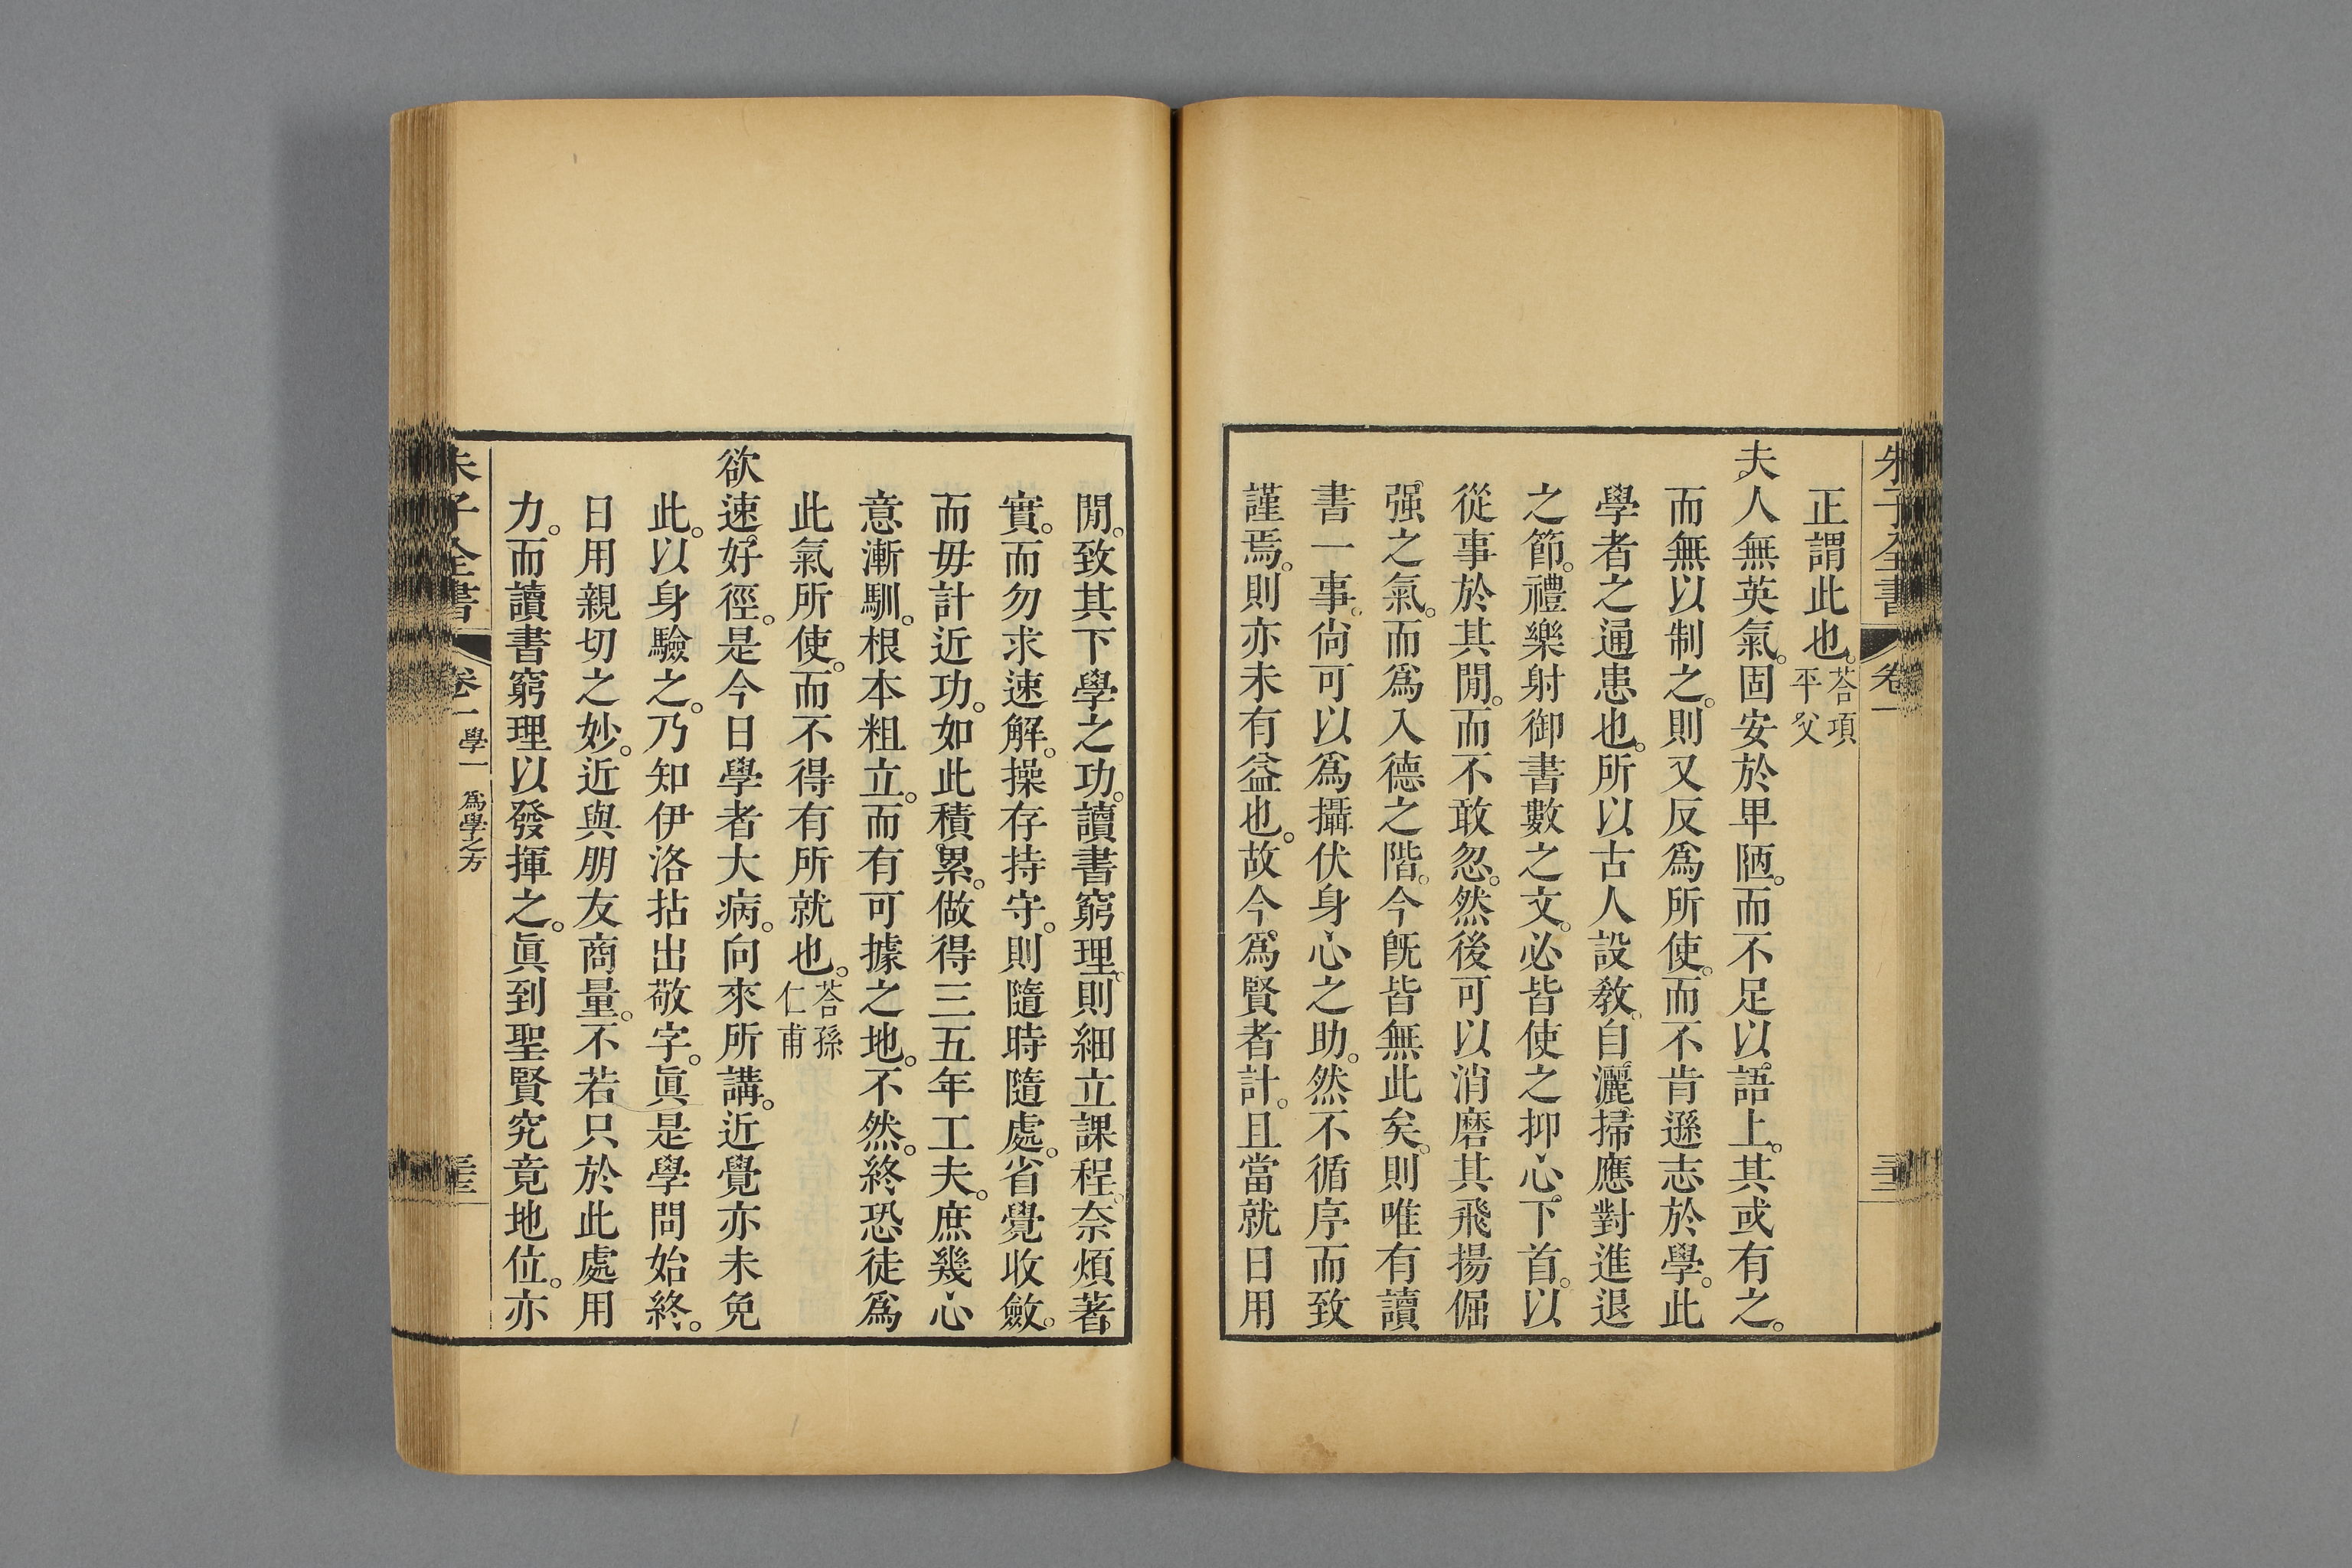 朱子全書 卷一
正謂此也。荅項平父
夫人無英氣。固安於卑陋。而不足以語上。其或有之。
而無以制之。則又反爲所使。而不肯遜志於學。此
學者之通患也。所以古人設敎。自灑掃應對進退
之節。禮樂射御書數之文。必皆使之抑心下首。以
從事於其閒。而不敢忽。然後可以消磨其飛揚倔
强之氣。而爲入德之階。今旣皆無此矣。則唯有讀
書一事。尙可以爲攝伏身心之助。然不循序而致
謹焉。則亦未有益也。故今爲賢者計。且當就日用
閒。致其下學之功。讀書窮理。則細立課程。奈煩著
實。而勿求速解。操存持守。則隨時隨處。省覺收斂。
而毋計近功。如此積累。做得三五年工夫。庶幾心
意漸馴。根本粗立。而有可據之地。不然。終恐徒爲
此氣所使。而不得有所就也。荅孫仁甫
欲速好徑。是今日學者大病。向來所講。近覺亦未免
此。以身驗之。乃知伊洛拈出敬字。眞是學問始終。
日用親切之妙。近與朋友商量。不若只於此處用
力。而讀書窮理以發揮之。眞到聖賢究竟地位。亦
朱子全書 卷一 學一 爲學之方